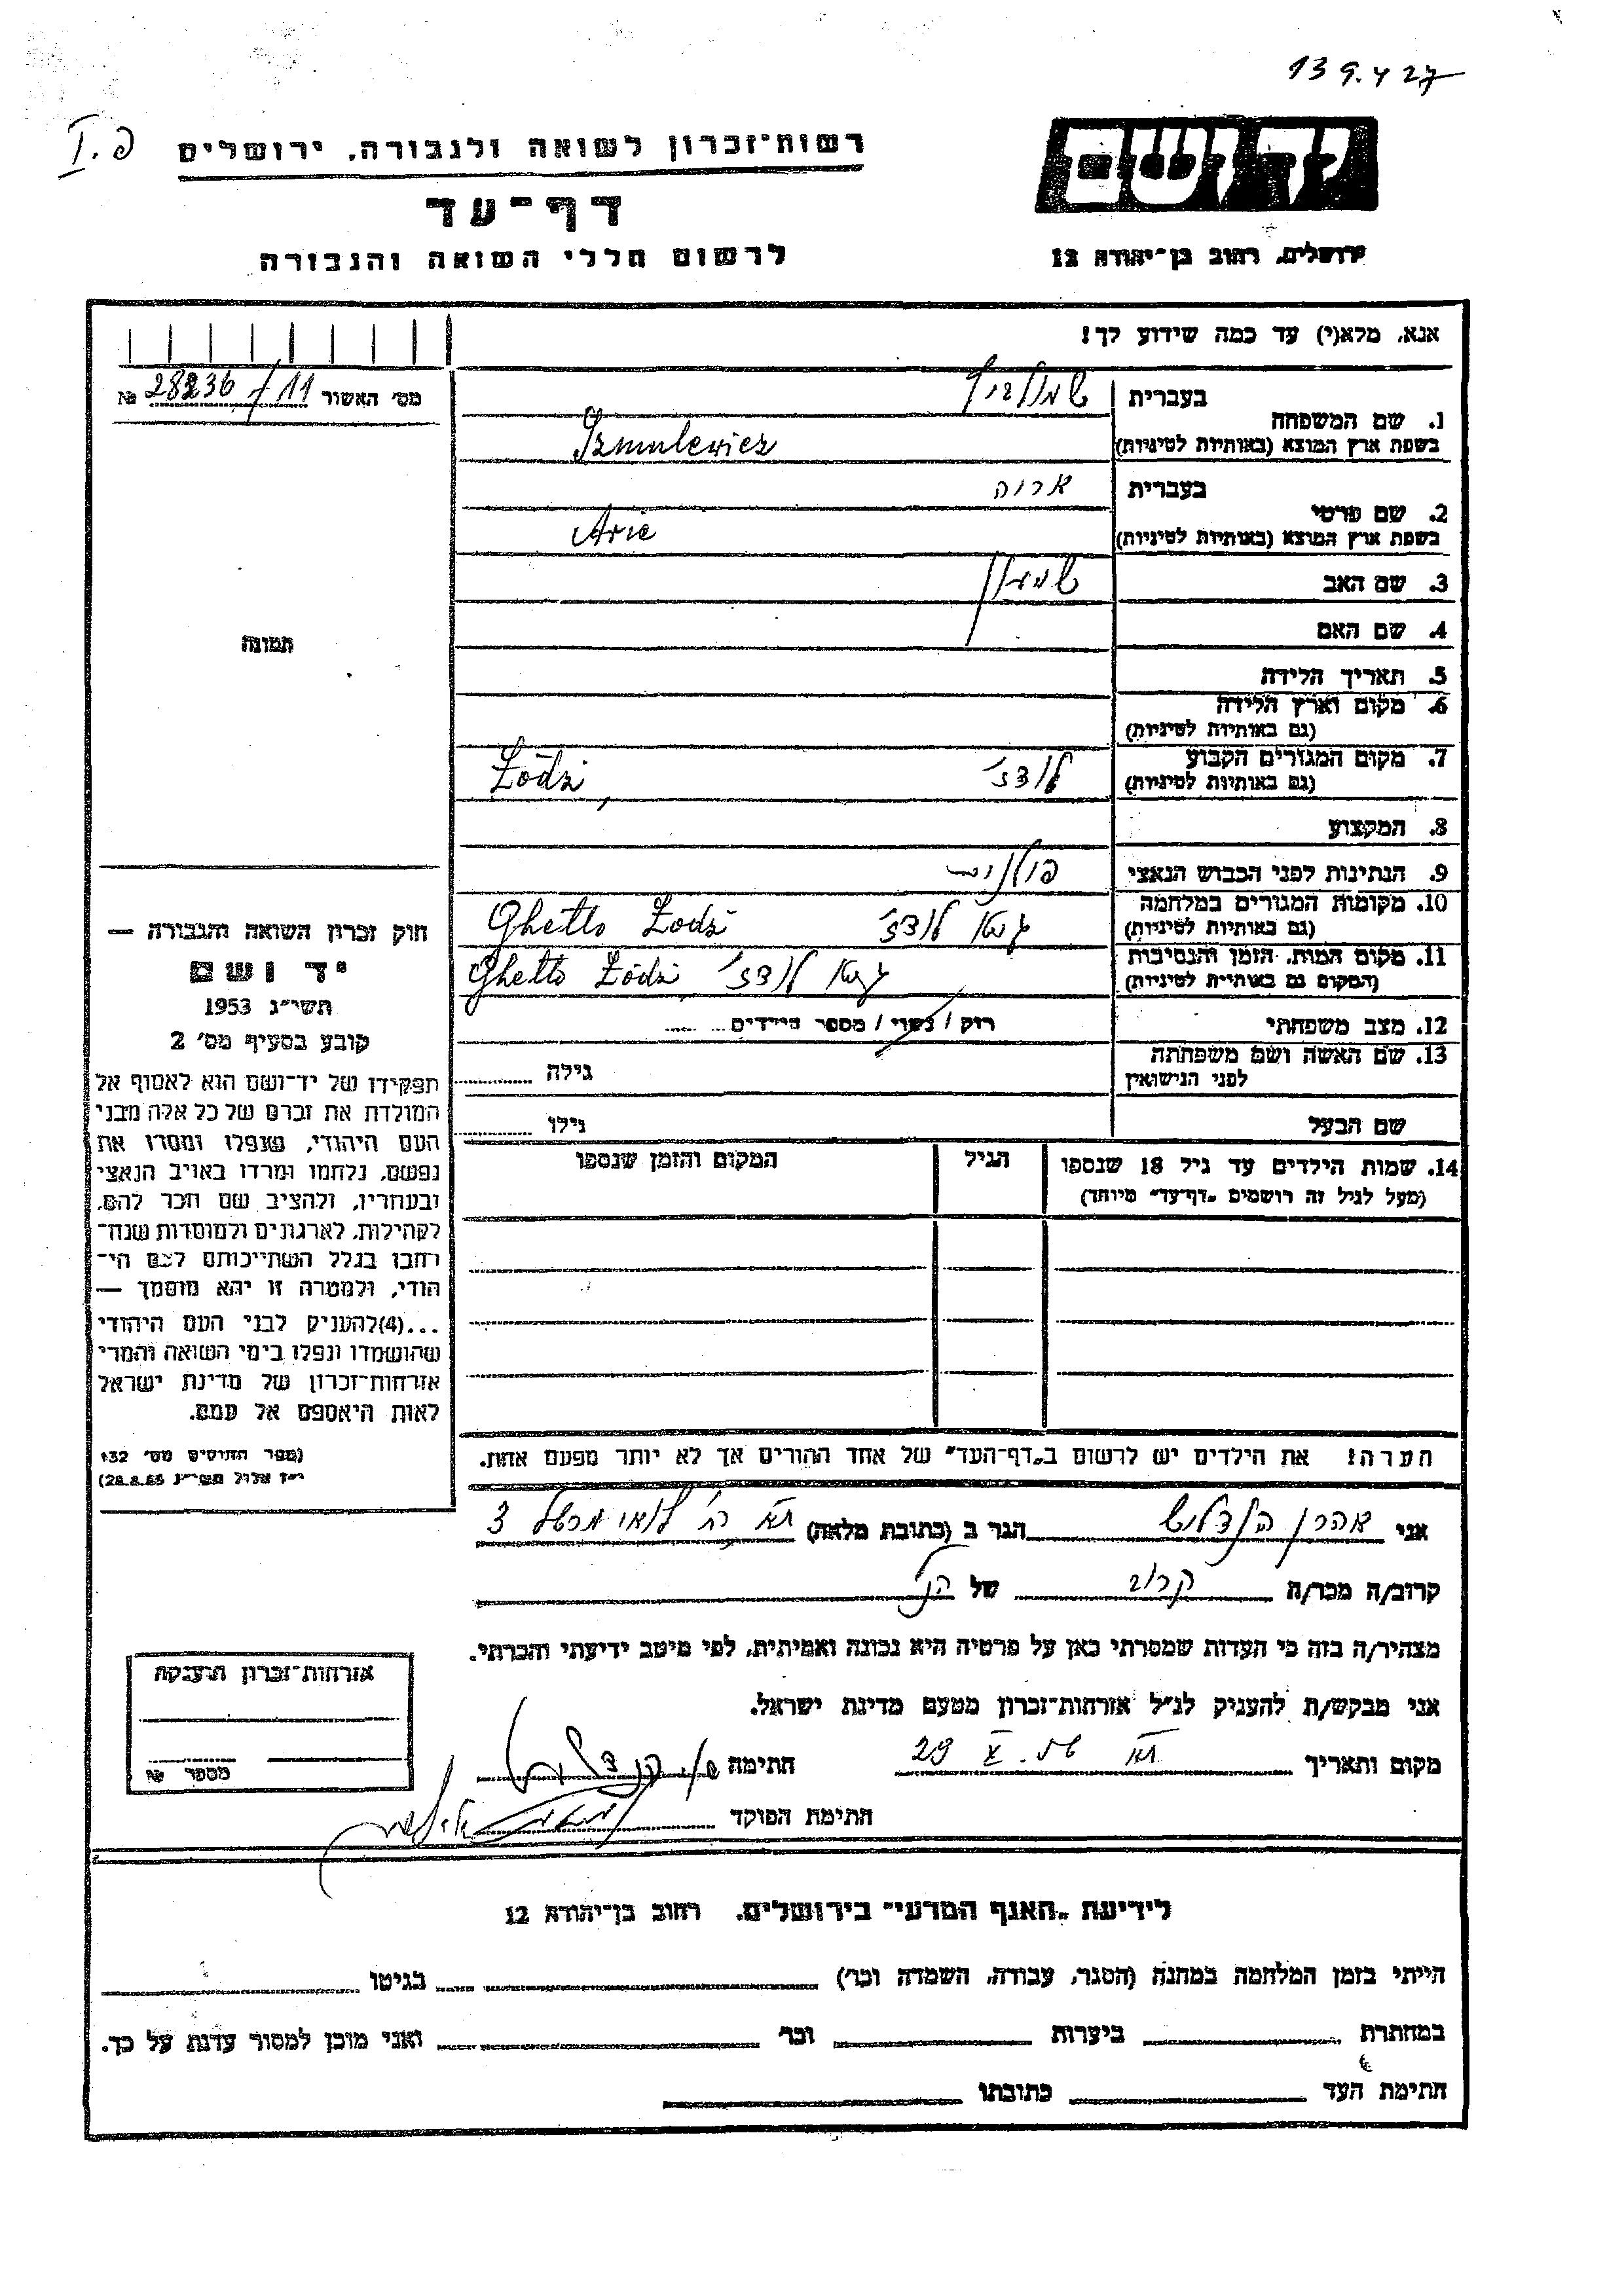 139.427
פ.I
רשות־זכרון לשואה ולגבורה, ירושלים
יד ושם
דף־עד
לרשום חללי השואה והגבורה
ירושלים, רחוב בן־יהודה 12
אנא, מלא(י) עד כמה שידוע לך!
מס׳ האשור 28236/11 №
תמונה
בעברית שמולביץ
1. שם המשפחה
בשפת ארץ המוצא (באותיות לטיניות) Szmulewicz
בעברית אריה
2. שם פרטי
בשפת ארץ המוצא (באותיות לטיניות) Arie
3. שם האב שמעון
4. שם האם
5. תאריך הלידה
6. מקום וארץ הלידה
(גם באותיות לטיניות)
7. מקום המגורים הקבוע לודז׳ Łódź
(גם באותיות לטיניות)
8. המקצוע
9. הנתינות לפני הכבוש הנאצי פולנית
10. מקומות המגורים במלחמה גטו לודז׳ Ghetto Łodź
(גם באותיות לטיניות)
11. מקום המות, הזמן והנסיבות גטו לודז׳ Ghetto Łódź
(המקום גם באותיות לטיניות)
12. מצב משפחתי רוק / נשוי / מספר הילדים
13. שם האשה ושם משפחתה
לפני הנישואין גילה
שם הבעל גילו
14. שמות הילדים עד גיל 18 שנספו הגיל המקום והזמן שנספו
(מעל לגיל זה רושמים „דף־עד״ מיוחד)
חוק זכרון השואה והגבורה —
יד ושם
תשי״ג 1953
קובע בסעיף מס׳ 2
תפקידו של יד־ושם הוא לאסוף אל
המולדת את זכרם של כל אלה מבני
העם היהודי, שנפלו ומסרו את
נפשם, נלחמו ומרדו באויב הנאצי
ובעוזריו, ולהציב שם וזכר להם,
לקהילות, לארגונים ולמוסדות שנח־
רבו בגלל השתייכותם לעם הי־
הודי, ולמטרה זו יהא מוסמך —
...(4)להעניק לבני העם היהודי
שהושמדו ונפלו בימי השואה והמרי
אזרחות־זכרון של מדינת ישראל
לאות היאספם אל עמם.
(ספר החוקים מס׳ 132
י״ז אלול תשי״ג 28.8.53)
הערה! את הילדים יש לרשום ב„דף־העד״ של אחד ההורים אך לא יותר מפעם אחת.
אני אהרן הנדליש הגר ב (כתובת מלאה) תא רח׳ 3
קרוב/ה מכר/ה קרוב של הנ״ל
מצהיר/ה בזה כי העדות שמסרתי כאן על פרטיה היא נכונה ואמיתית, לפי מיטב ידיעתי והכרתי.
אני מבקש/ת להעניק לנ״ל אזרחות־זכרון מטעם מדינת ישראל.
מקום ותאריך תא 29 חתימה
חתימת הפוקד
אזרחות־זכרון הוענקה
מספר №
לידיעת „האגף המדעי״ בירושלים, רחוב בן־יהודה 12
הייתי בזמן המלחמה במחנה (הסגר, עבודה, השמדה וכו׳) בגיטו
במחתרת ביערות וכו׳ ואני מוכן למסור עדות על כך.
חתימת העד כתובתו